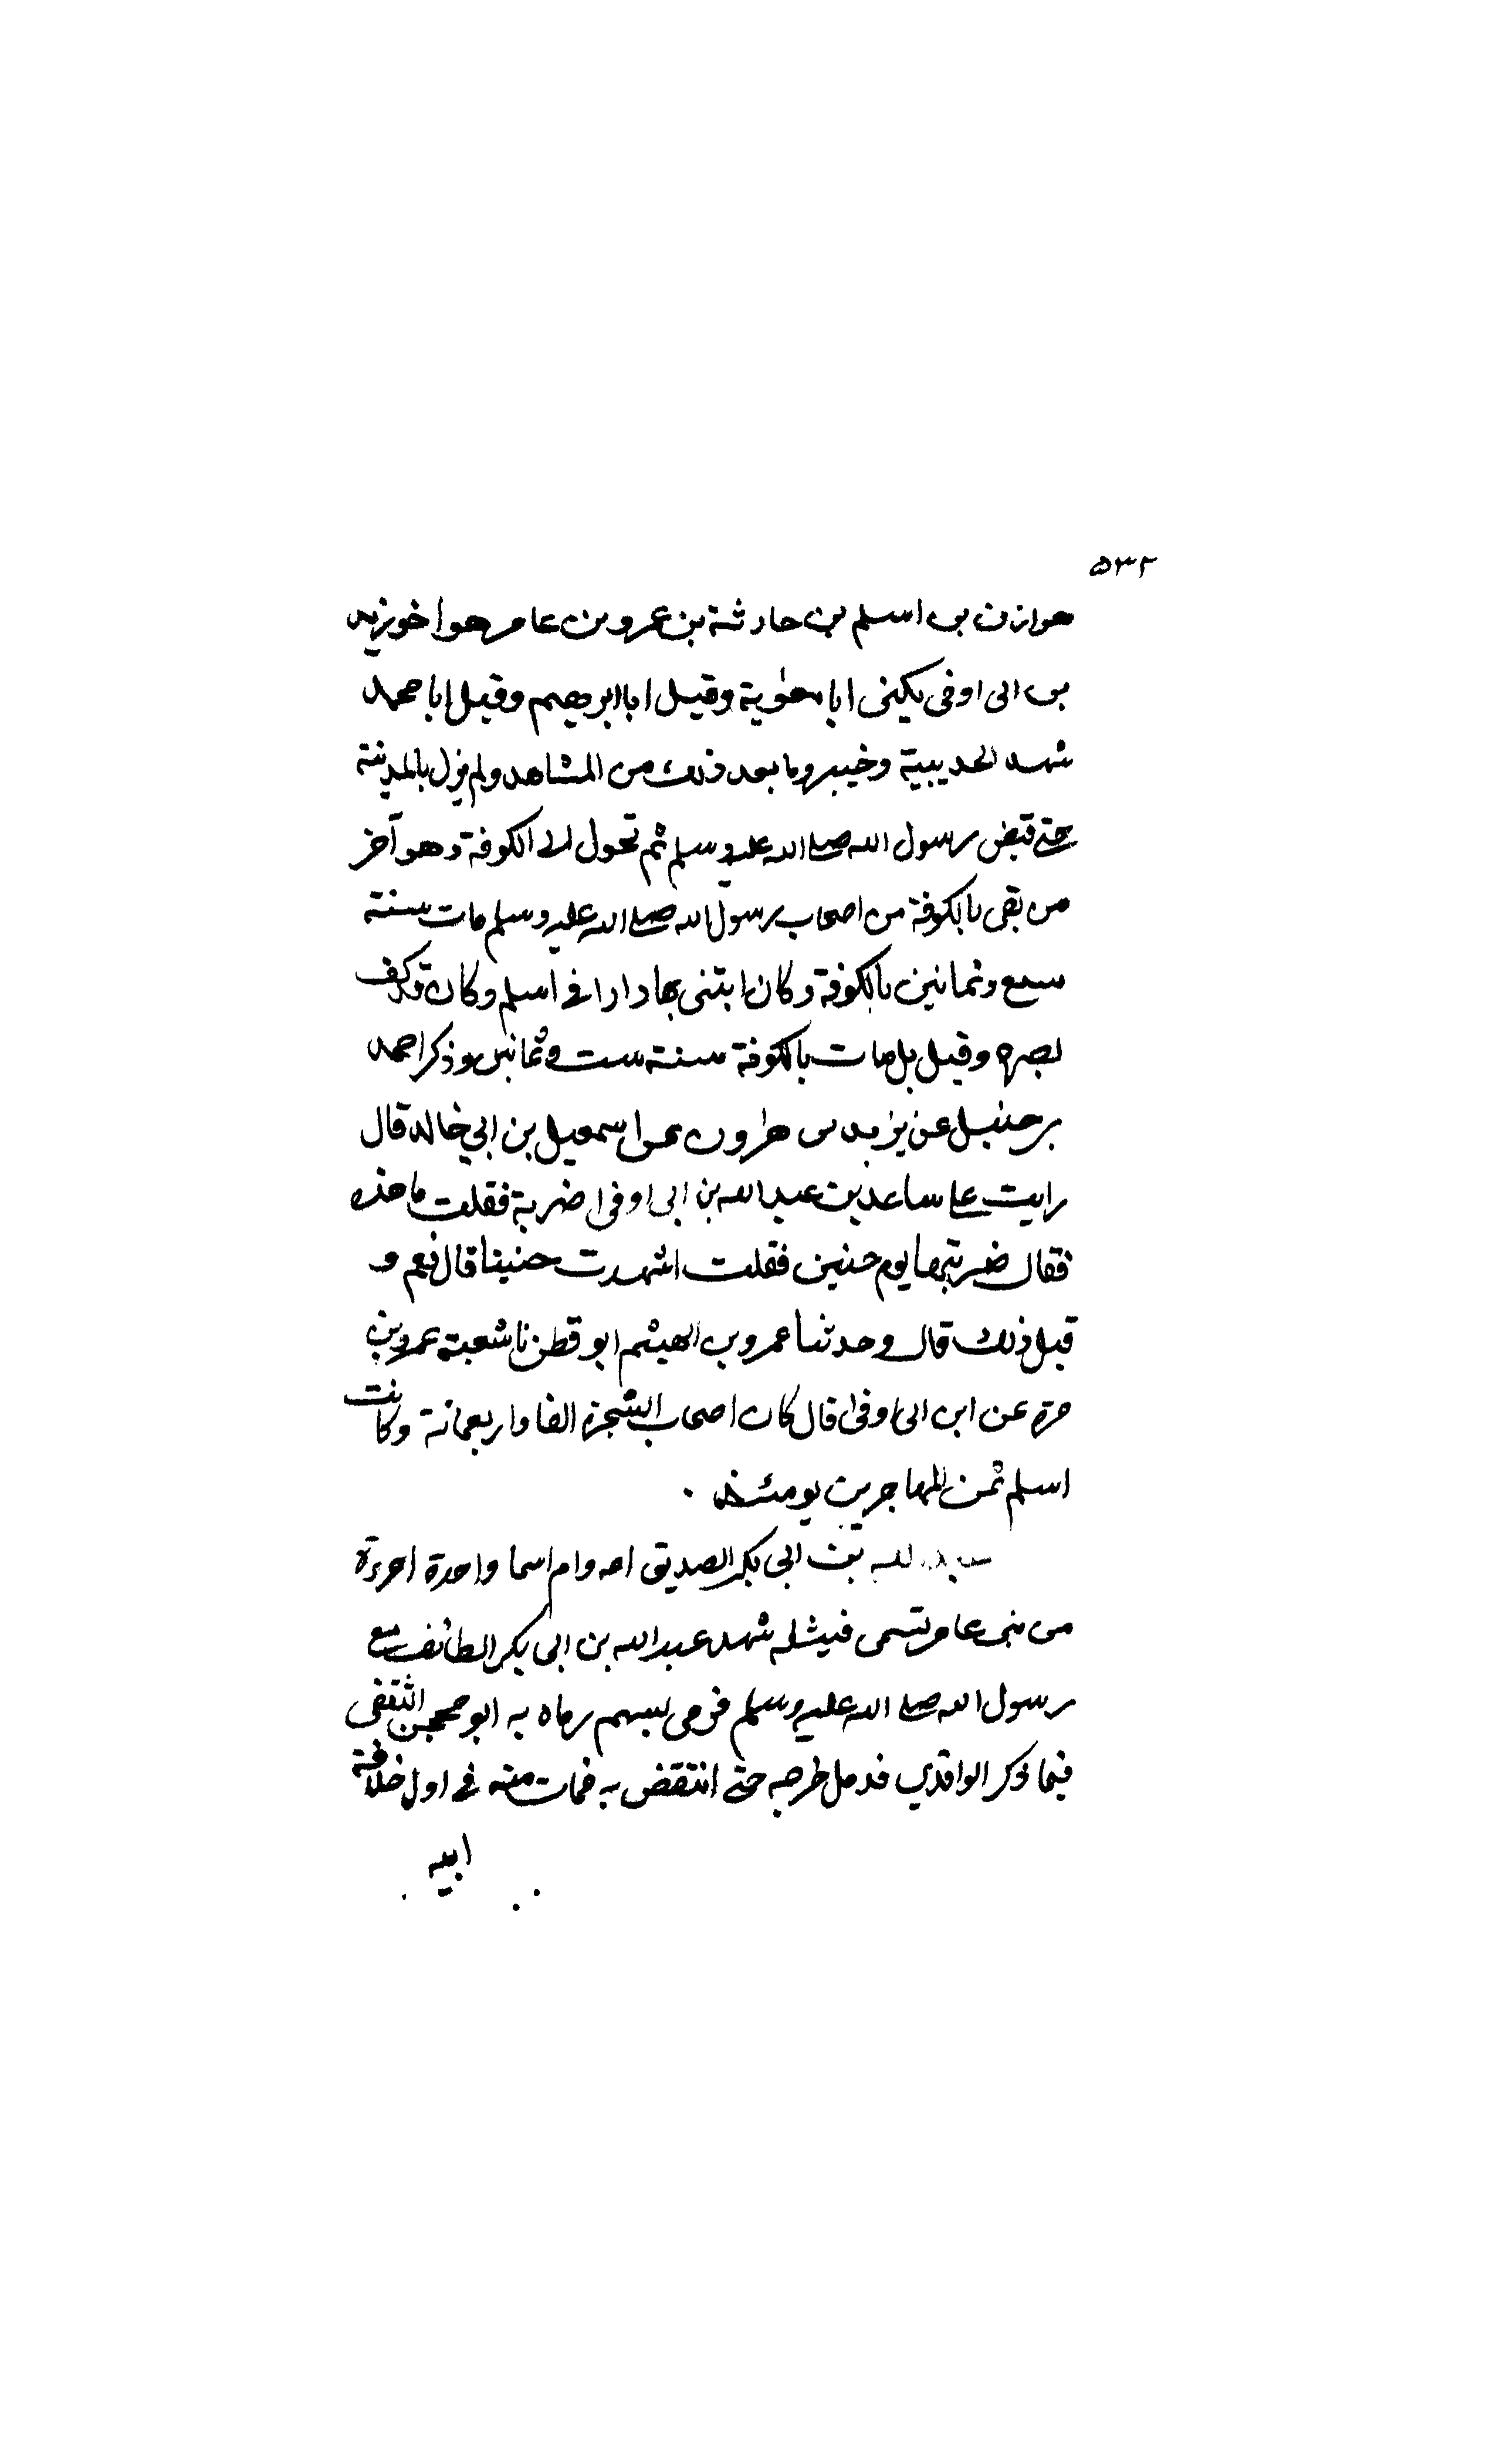 ٥٣٢
هوازن بن اسلم بن حارثة بن عمرو بن عامر هو اخو زيد
بن ابى اوفى يكنى ابا معوية وقيل ابا ابرهيم وقيل ابا محمد
شهد الحديبية وخيبر وما بعد ذلك من المشاهد ولم يزل بالمدينة
حتى قبض رسول الله صلى الله عليه وسلم ثم تحول الى الكوفة وهو آخر
من بقى بالكوفة من اصحاب رسول الله صلى الله عليه وسلم مات سنة
سبع وثمانين بالكوفة وكان ابتنى بها دارا فى اسلم وكان قد كف
بصره وقيل بل مات بالكوفة سنة ست وثمانين وذكر احمد
بن حنبل عن يزيد بن هرون عن اسمعيل بن ابي خالد قال
رايت على ساعد بن عبد الله بن ابى اوفى ضربة فقلت ما هذه
فقال ضربتها يوم حنين فقلت اشهدت حنينا قال نعم و
قبل ذلك قال وحدثنا عمرو بن الهيثم ابو قطن نا شعبة عمرو بن
مرة عن ابن ابى اوفى قال كان اصحاب الشجرة الفا واربعمائة وكانت
اسلم ثمن المهاجرين يومئذ .
عبد الله بن ابى بكر الصديق امه وام اسما واحدة امرءة
من بنى عامر تسمى فتيلة شهد عبد الله بن ابى بكر الطائف مع
رسول الله صلى الله عليه وسلم فرمى بسهم رماه به ابو محجن الثقفى
فيما ذكر الواقدي فدمل جرحه حتى انتقض به فمات منه فى اول خلافة
ابيه